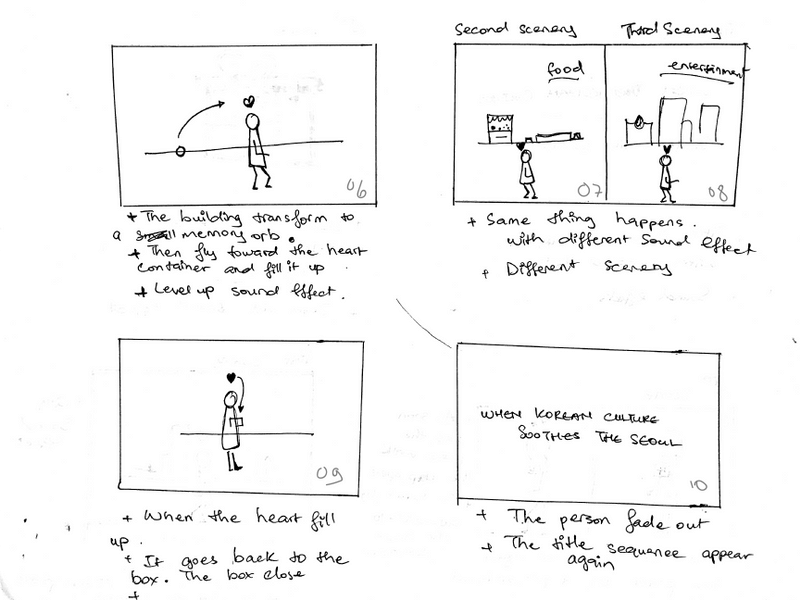 06
+ The building transform to
a small memory orb.
+ Then fly toward the heart
container and fill it up
+ Level up sound effect.
Second scenery
food
07
Third Scenery
entertainment
08
+ Same thing happens.
with different sound effect
+ Different scenery
09
+ When the heart fill
up.
+ It goes back to the
box. The box close
+
WHEN KOREAN CULTURE
SOOTHES THE SEOUL
10
+ The person fade out
+ The title sequence appear
again